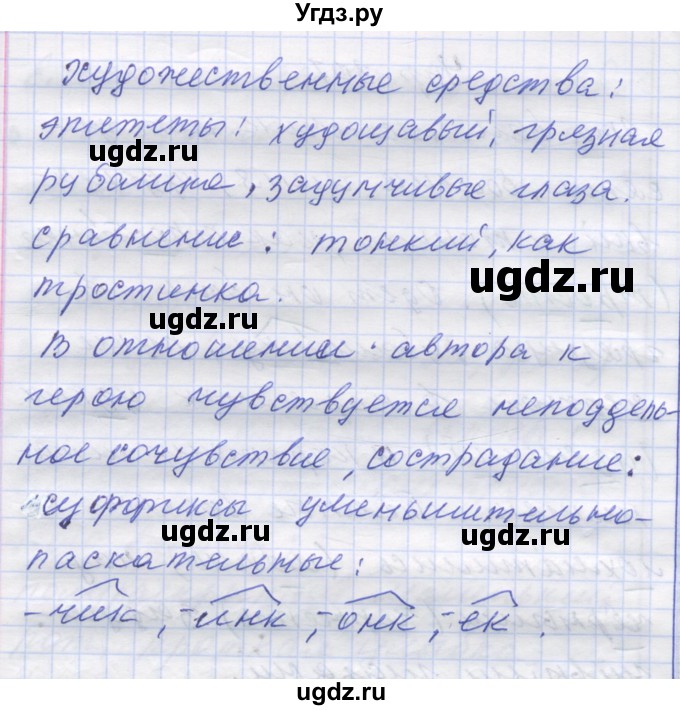 Угдз.ру
художественные средства:
эпитеты: худощавый, грязная
ugdz.ru ugdz.ru
рубашка, задумчивые глаза.
сравнение: тонкий, как
ugdz.ru
тростинка.
ugdz.ru
В отношении автора к
герою чувствуется неподдель-
ное сочувствие, сострадание:
ugdz.ru
суффиксы уменьшительно-
ugdz.ru ugdz.ru
ласкательные:
-чик, -инк, -онк, -ек.
ugdz.ru
ugdz.ru